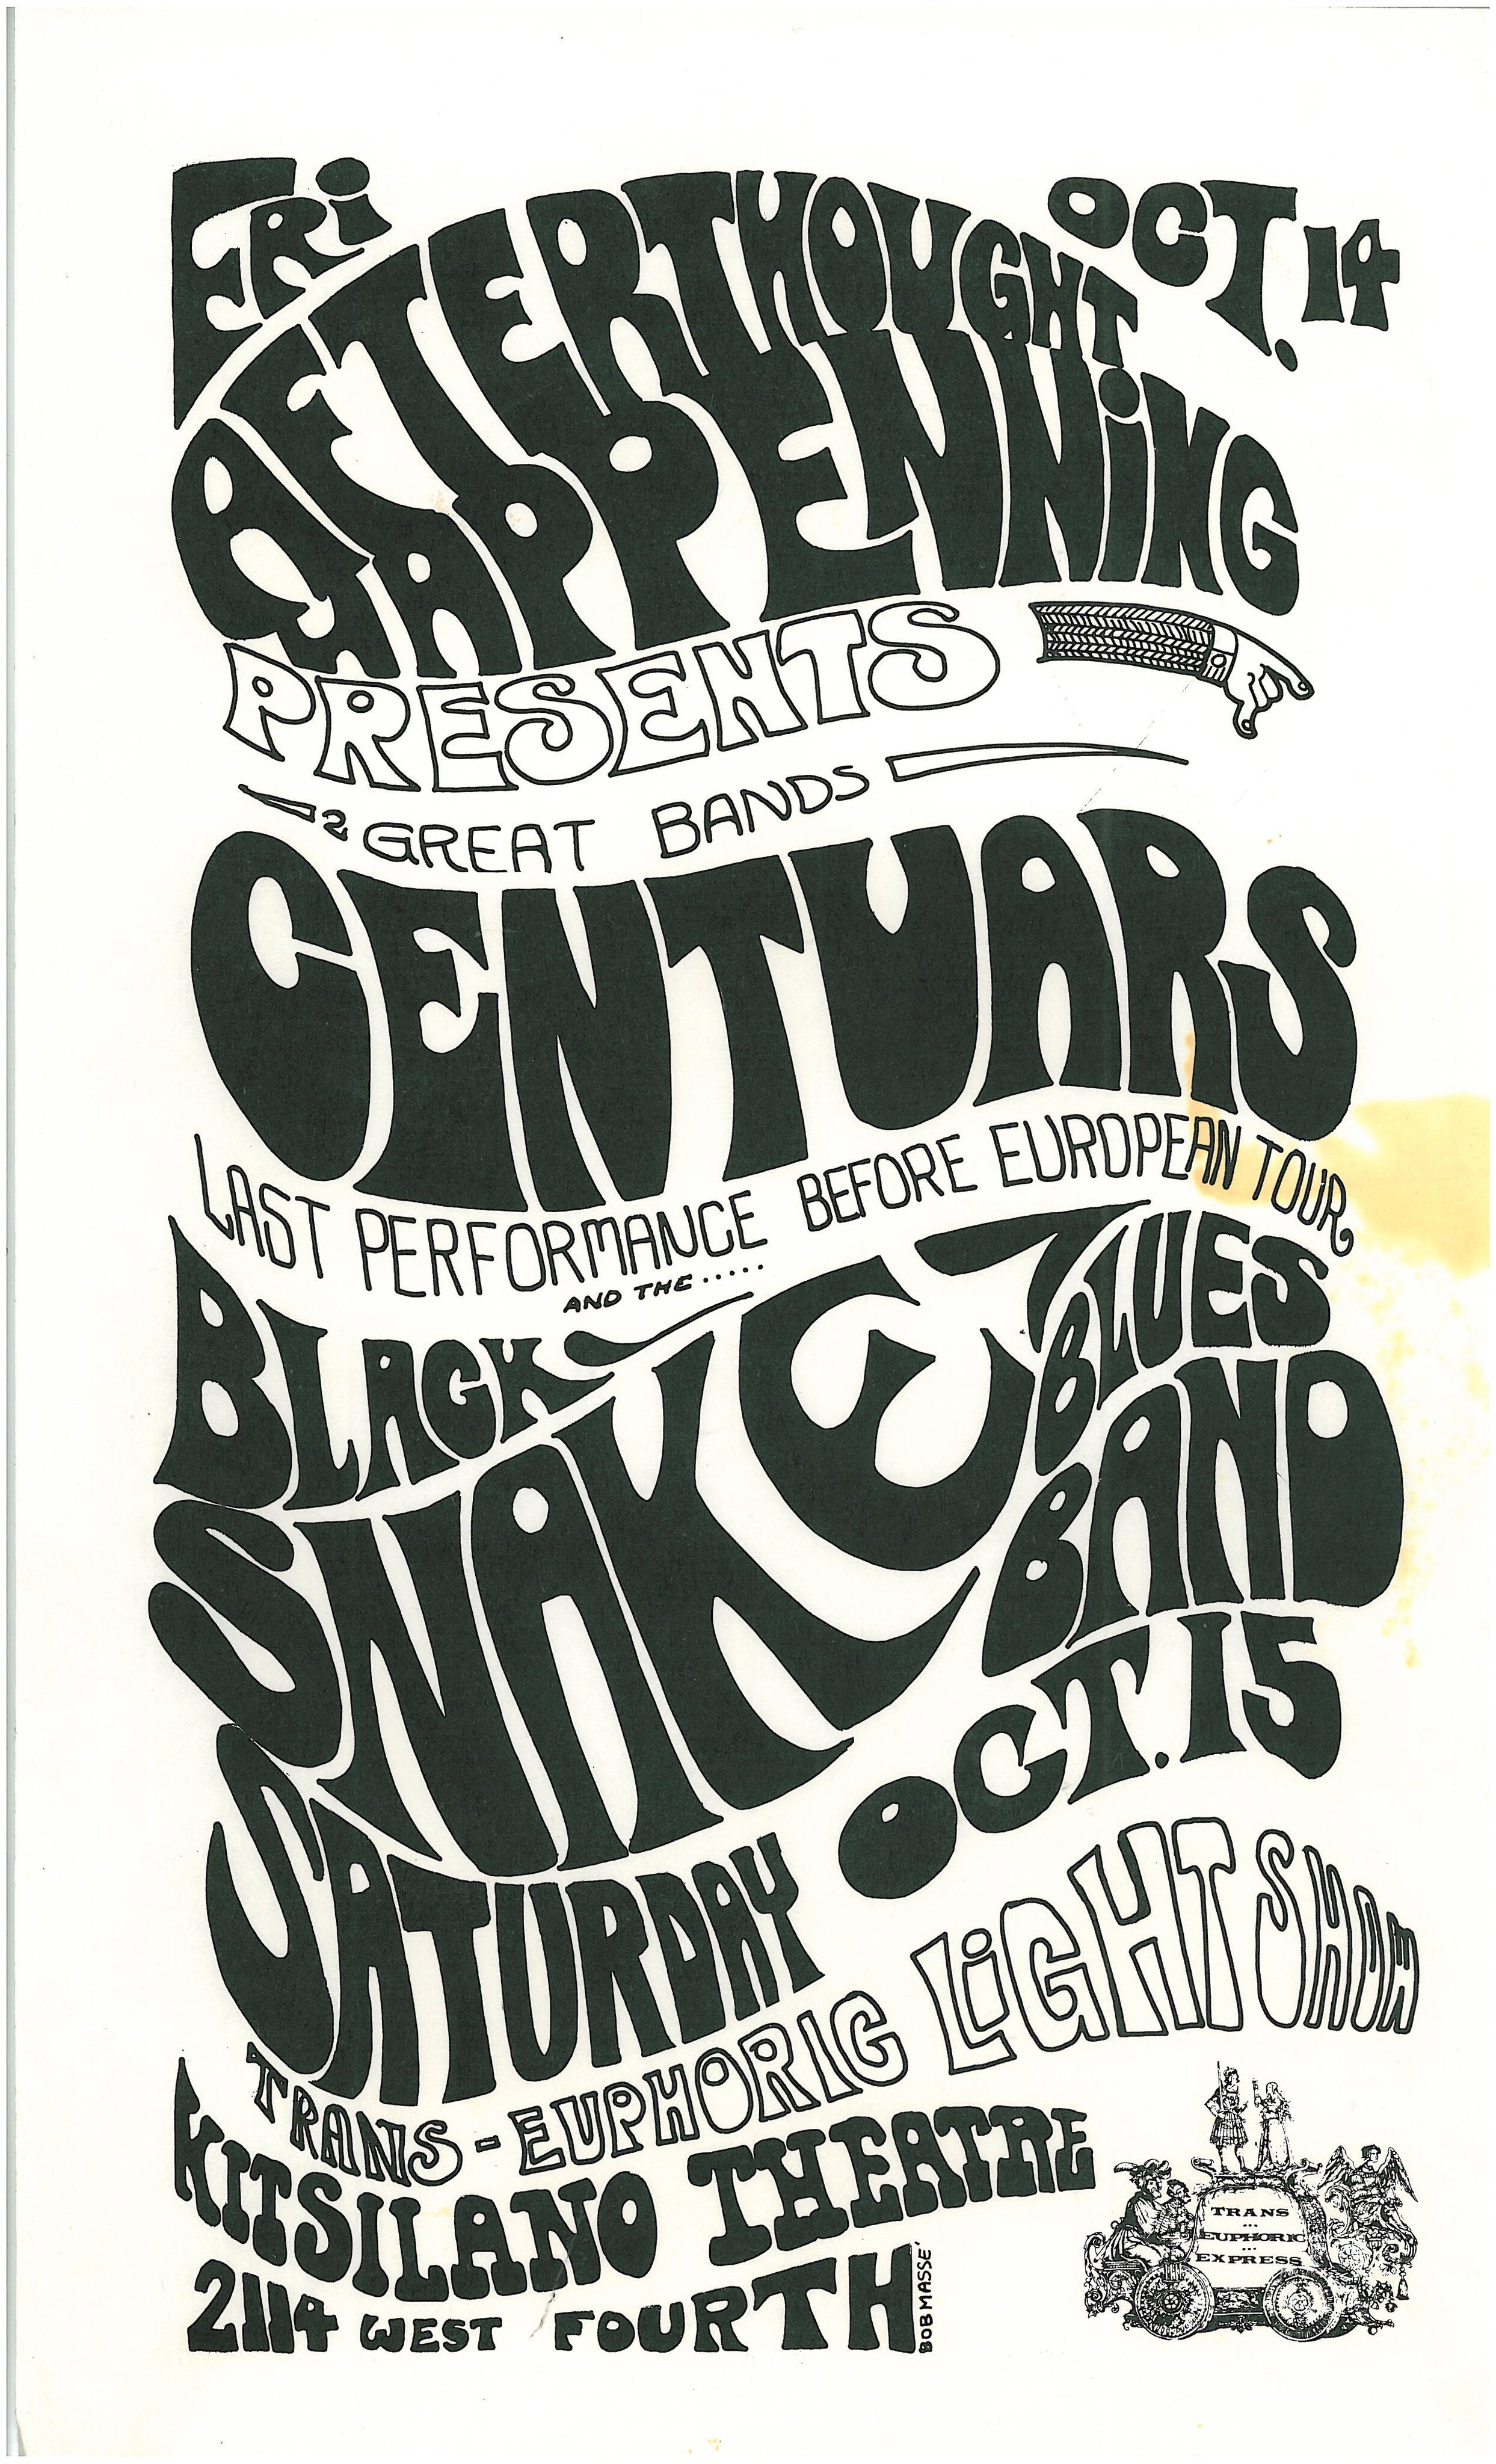 FRi OCT. 14
AFTERTHOUGHT
HAPPENNiNG
PRESENTS
2 GREAT BANDS
CENTUARS
LAST PERFORMANCE BEFORE EUROPEAN TOUR
AND THE ......
BLACK
SNAKE
BLUES
BAND
SATURDAY OCT. 15
TRANS - EUPHORIC LiGHT SHOW
KITSILANO THEATRE
2114 WEST FOURTH
BOB MASSE'
TRANS
...
EUPHORIC
...
EXPRESS